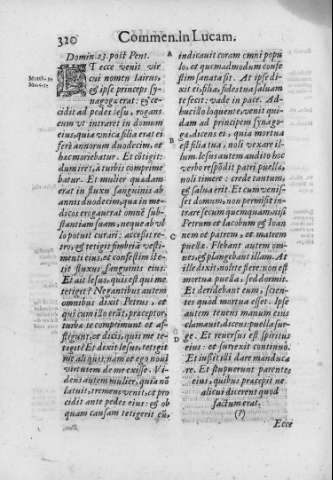 320 Commen. In Lucam.
Domin. 23. post Pent.
Matth. 9.
Mar. 5.
ET ecce venit vir
cui nomen Iairus,
& ipse princeps sy
nagogæ erat: & ce
cidit ad pedes Iesu, rogans
eum vt intraret in domum
eius, quia vnica filia erat ei
ferè annorum duodecim, et
hæc moriebatur. Et cōtigit:
dum iret, à turbis comprime
batur. Et mulier quædam
erat in fluxu sanguinis ab
annis duodecim, quæ in me
dicos erogauerat omnē sub
stantiam suam, neque ab vl
lo potuit curari: accessit re
tro, & tetigit fimbriā vesti
menti eius, et confestim ste
tit fluxus sanguinis eius.
Et ait Iesus, quis est qui me
tetigit? Negantibus autem
omnibus dixit Petrus, et
qui cum illo erāt, præceptor,
turbæ te comprimunt et af
fligunt, et dicis, quis me te
tigit? Et dixit Iesus, tetigit
me aliquis: nam et ego noui
virtutem de me exisse. Vi
dens autem mulier, quia nō
latuit, tremens venit, et pro
cidit ante pedes eius: & ob
quam causam tetigerit eū,
A
B
C
D
indicauit coram omni popu
lo, et quemadmodum confe
stim sanata sit. At ipse di
xit ei, filia, fides tua saluam
te fecit: vade in pace. Ad-
huc illo loquente, venit qui
dam ad principem synago
gæ, dicens ei, quia mortua
est filia tua, noli vexare il
lum. Iesus autem audito hoc
verbo respōdit patri puellæ,
noli timere: crede tantum,
& salua erit. Et cum venis-
set domum, non permisit in
trare secum quemquam, nisi
Petrum et Iacobum & Ioan
nem, et patrem et matrem
puellæ. Flebant autem om
nes, & plangebant illam. At
ille dixit: nolite flere: non est
mortua puella, sed dormit.
Et deridebant eum, scien-
tes quod mortua esset. Ipse
autem tenens manum eius
clamauit, dicens: puella sur
ge. Et reuersus est spiritus
eius: et surrexit continuò.
Et iussit illi dare manduca
re. Et stupuerunt parentes
eius, quibus præcepit ne
alicui dicerent quod
factum erat.
(?)
Ecce